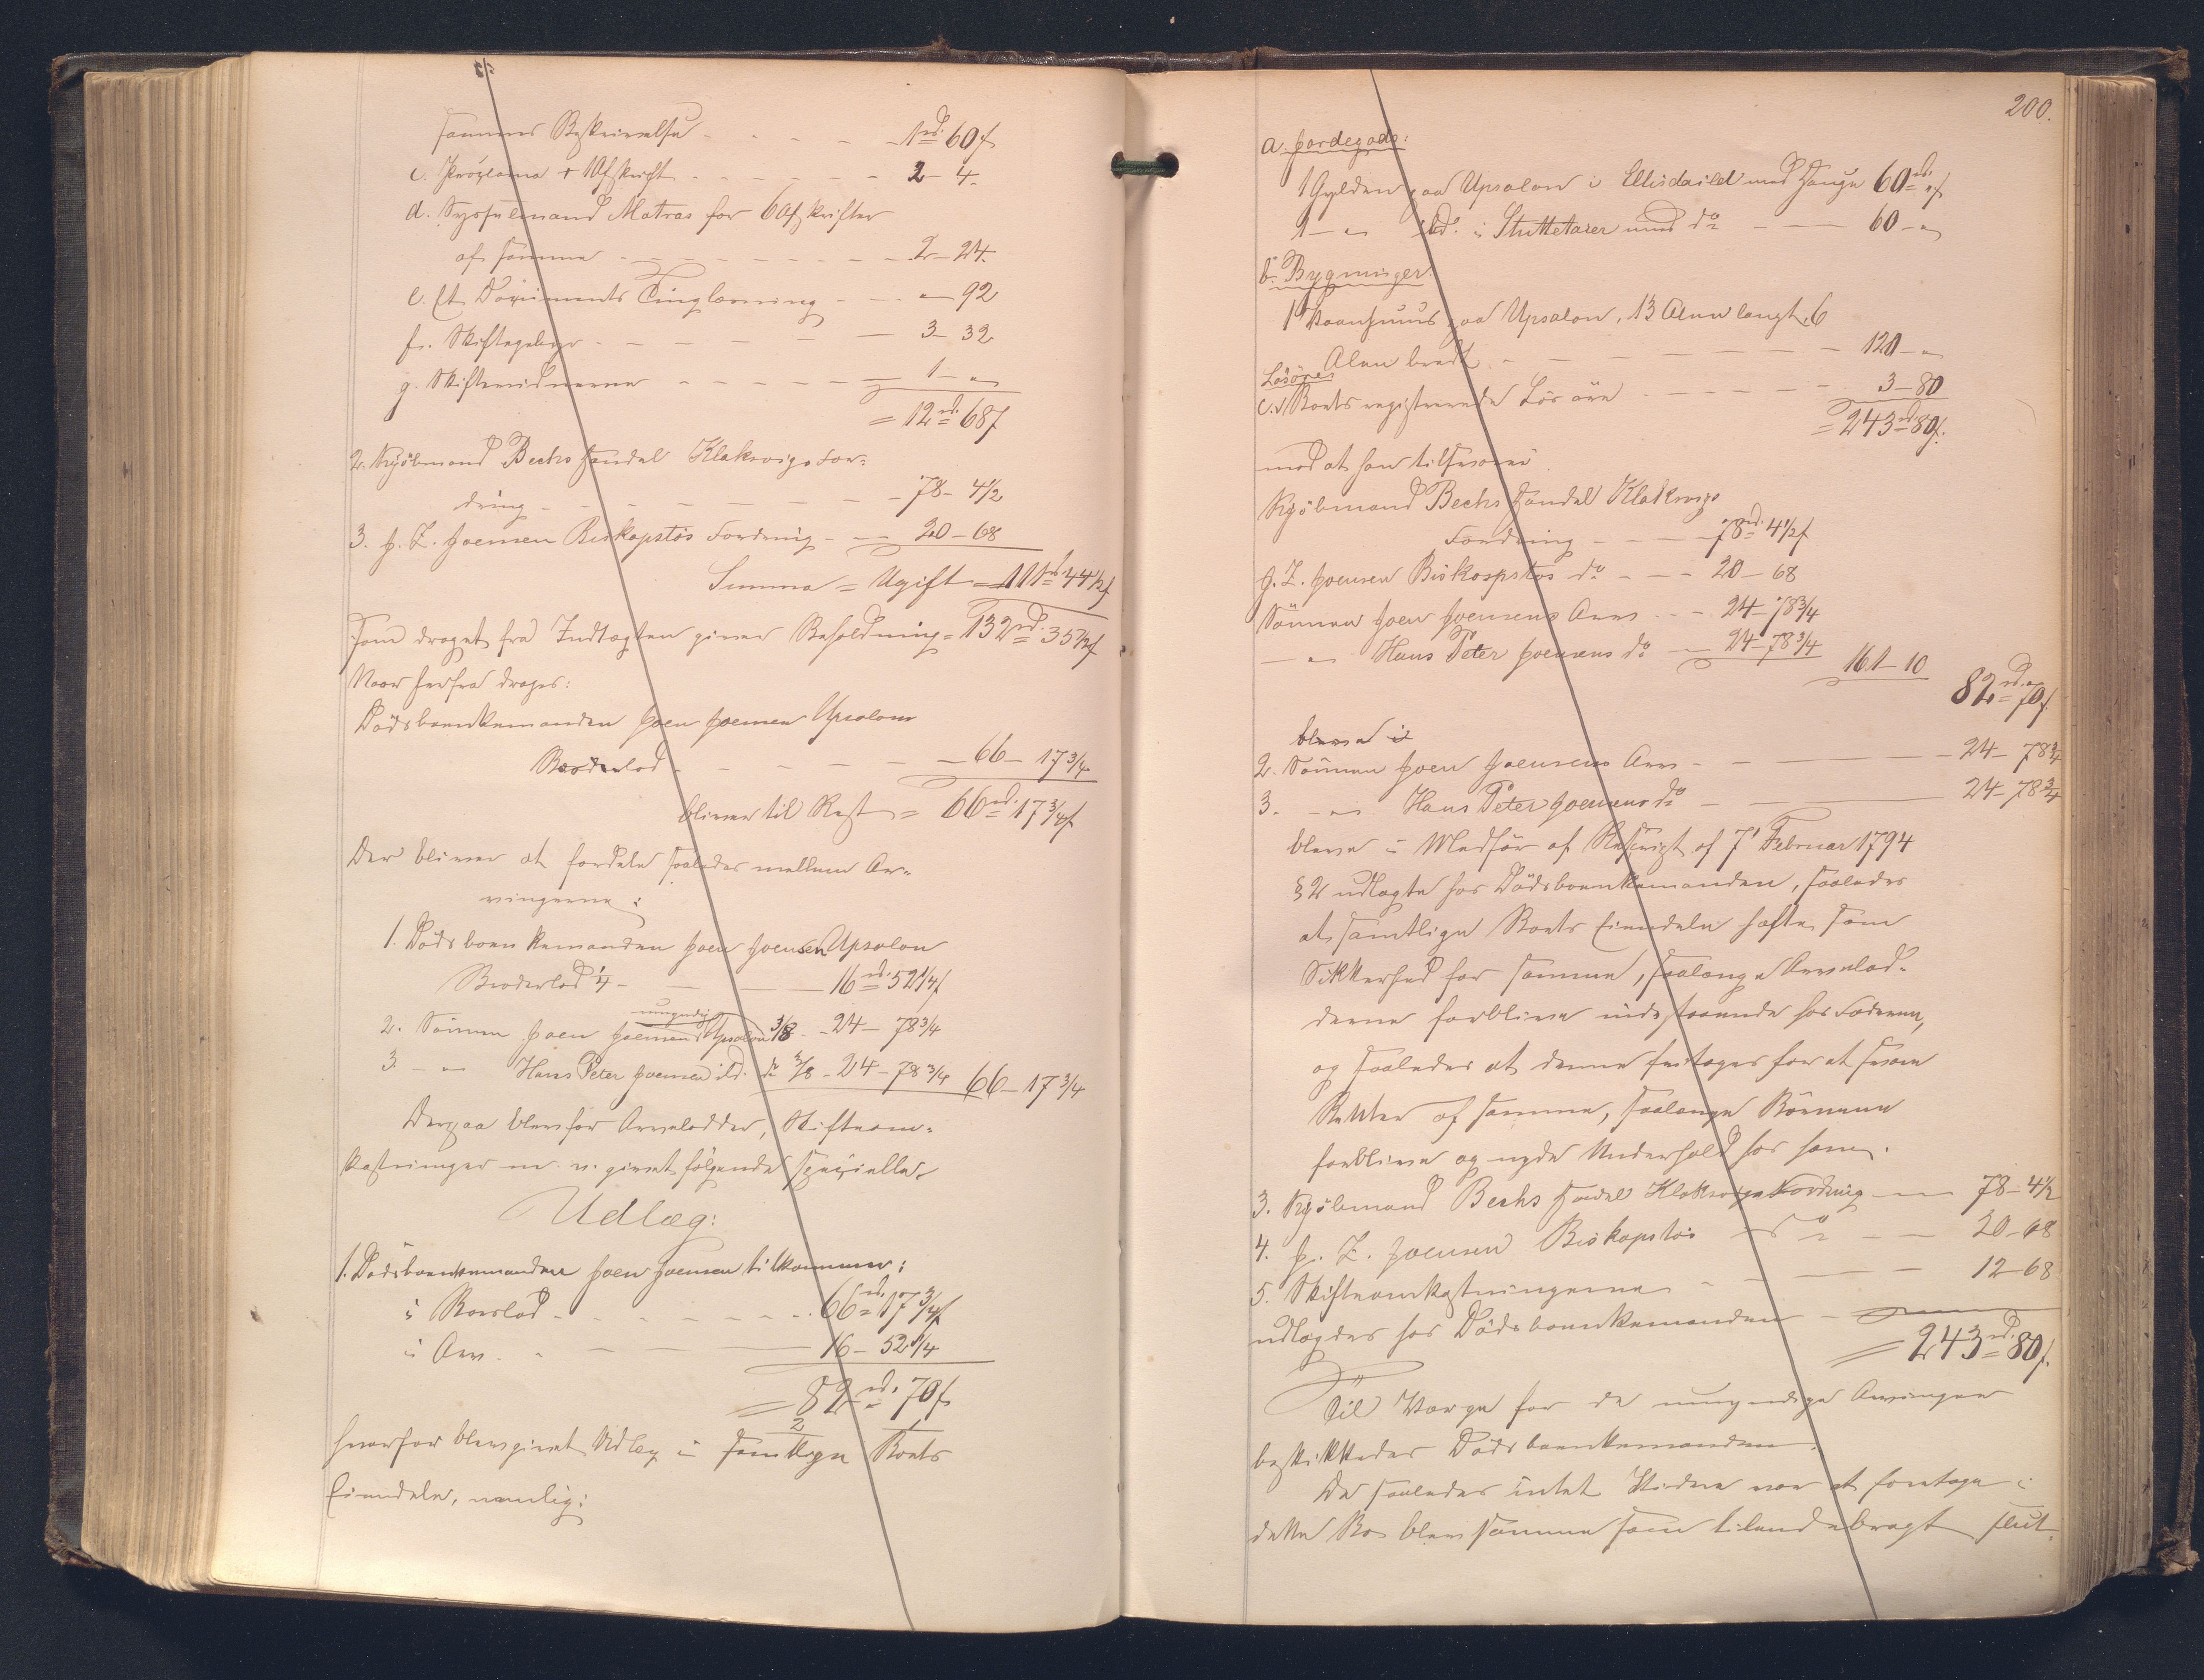 sammes Beskrivelse - - - - 1 rd. 60 f
c. Proclama + 1 Afskrift - - - - - - 2 - 4 -
d. Sysselmand Matras for 6 Afskrifter
af samme - - - - - - - 2 - 24.
e. Et Documents Tinglæsning - - - „ - 92
f. Skiftegebyr - - - - - - 3 - 32
g. Skiftevidnerne - - - - - - 1 - „
= 12 rd. 68 f
2. Kjöbmand Bechs Handel Klaksvigs For-
dring - - - - - - 78 - 4½
3. J. Z. Joensen Biskopstös Fordring - - 20 - 68
Summa = Udgift = 111 rd. 44½ f
som draget fra Indtægten giver Beholdning = 132 rd. 35½ f
Naar herfra drages:
Dödsboenkemanden Joen Joensen Upsalons
Boeslod - - - - - - 66 - 17¾
bliver til Rest = 66 rd. 17¾ f
Der bliver at fordele saaledes mellem Ar-
vingerne:
1. Dödsboenkemanden Joen Joensen Upsalon
Broderlod ¼ - - - 16 rd. 52¼ f
umyndig
2. Sönnen Joen Joensen Upsalon 3/8 - 24 - 78¾
3. - „ Hans Peter Joensen ibd. do 3/8 - 24 - 78¾ 66 - 17¾
Derpaa blev for Arvelodder, Skifteom-
kostninger m. v. givet følgende specielle
Udlæg:
1. Dödsboenkemanden Joen Joensen tilkommer:
i Boeslod - - - - - - 66 rd. 17¾ f
i Arv - - - - 16 - 52¼
= 82 rd. 70 f
2
hvorfor blev givet Udlæg i samtlige Boets
Eiendele, nemlig:
200.
a. Jordegods:
1 Gylden paa Upsalon i Ellisdaild med Hauge 60 rd. „ f
1 - „ ibd. i Stuttetaaer med do - - 60 - „
b. Bygninger:
1 Vaanhuus paa Upsalon, 13 Alen langt, 6
Alen bredt - - - - - - 120 - „
Lösöre
c. Boets registrerede Lösöre - - - - 3 - 80
= 243 rd. 80 f.
mod at han tilsvarer
Kjöbmand Bechs Handel Klaksvigs
Fordring - - - 78 rd. 4½ f
J. Z. Joensen Biskospstös do - - - 20 - 68
Sönnen Joen Joensens Arv - - 24 - 78¾
- „ Hans Peter Joensens do - 24 - 78¾
161 - 10
82 rd. 70 f.
bleve i
2. Sönnen Joen Joensens Arv - - - 24 - 78¾
3. - „ Hans Peter Joensens do - - 24 - 78¾
bleve i Medför af Rescript af 7' Februar 1794
§ 2 udlagte hos Dödsboenkemanden, saaledes
at samtlige Boets Eiendele hefte som
Sikkerhed for samme, saalænge Arvelod-
derne forblive indestaaende hos Faderen,
og saaledes at denne fritages for at svare
Renter af samme, saalænge Börnene
forblive og nyde Underhold hos ham.
3. Kjöbmand Bechs Handel Klaksvigs Fordring - - 78 - 4½
4. J. Z. Joensen Biskopstös do - - 20 - 68
5. Skifteomkostningerne - - - - 12 - 68
udlagdes hos Dödsboenkemanden -
= 243 rd. 80 f.
Til Værge for de umyndige Arvinger
beskikkedes Dödsboenkemanden.
Da saaledes intet Videre var at foretage i
dette Bo blev samme som tilendebragt slut-